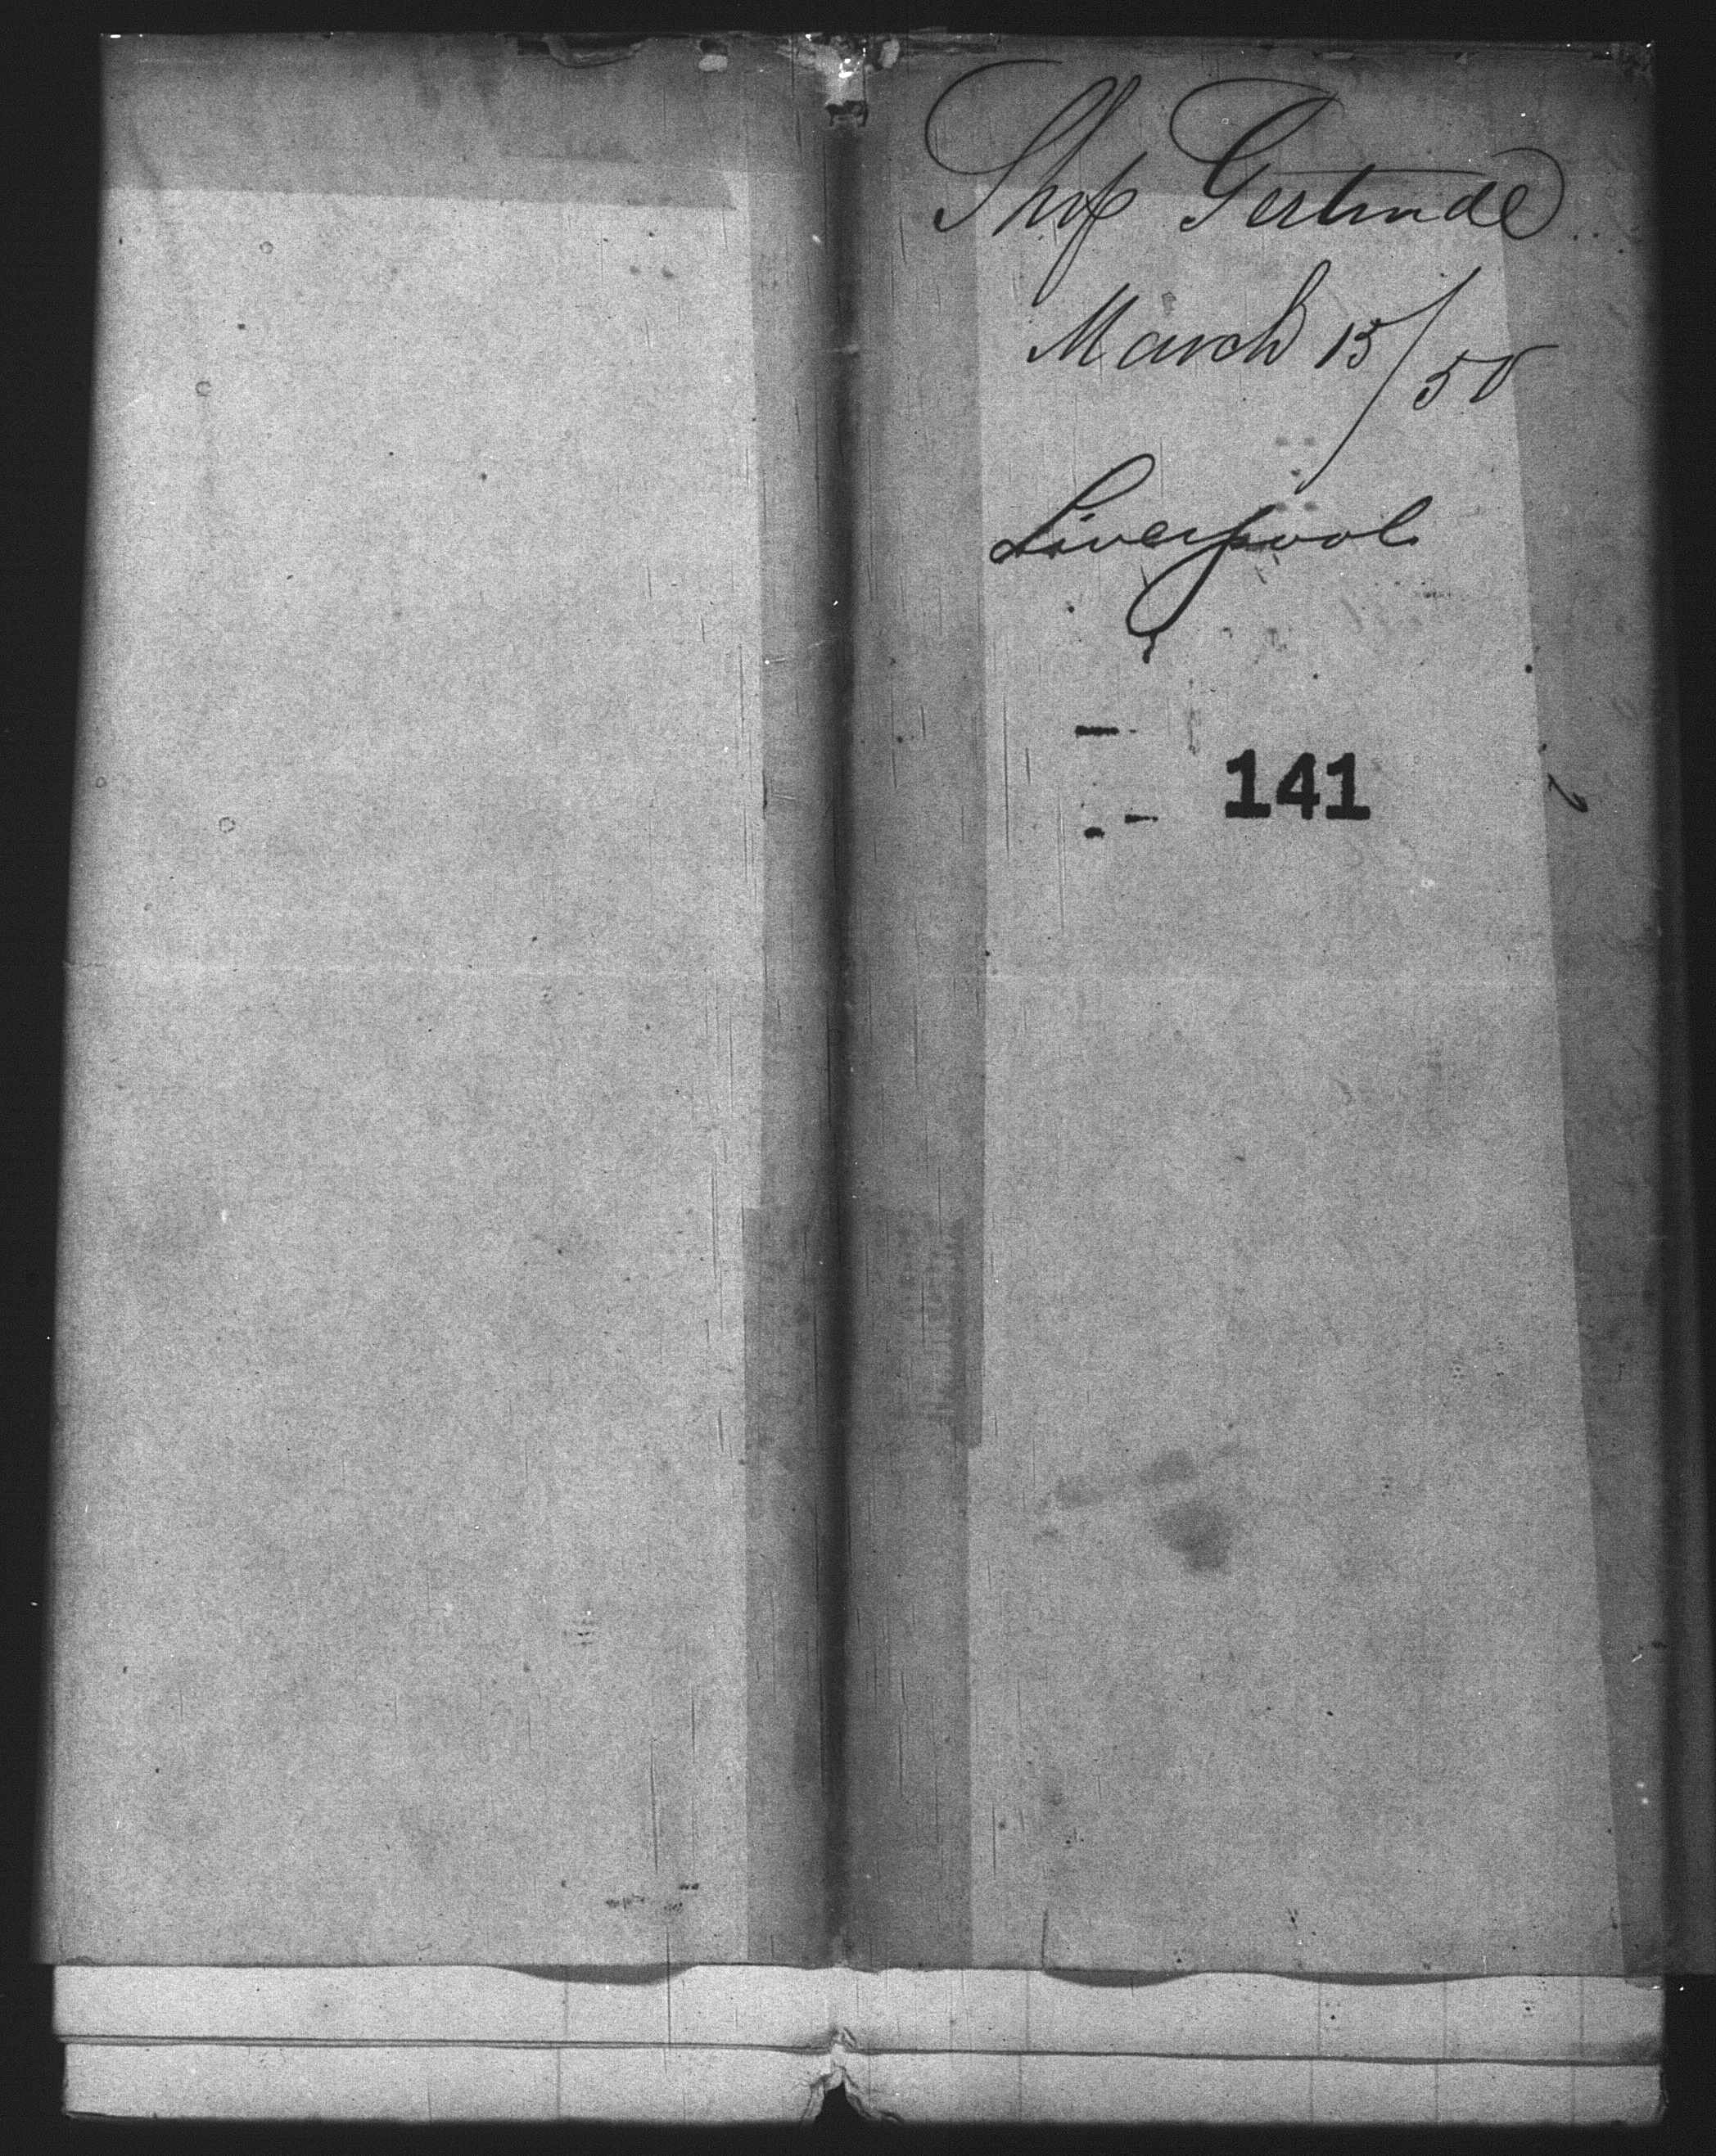 Ship Gertrude
March 15/50
Liverpool
141